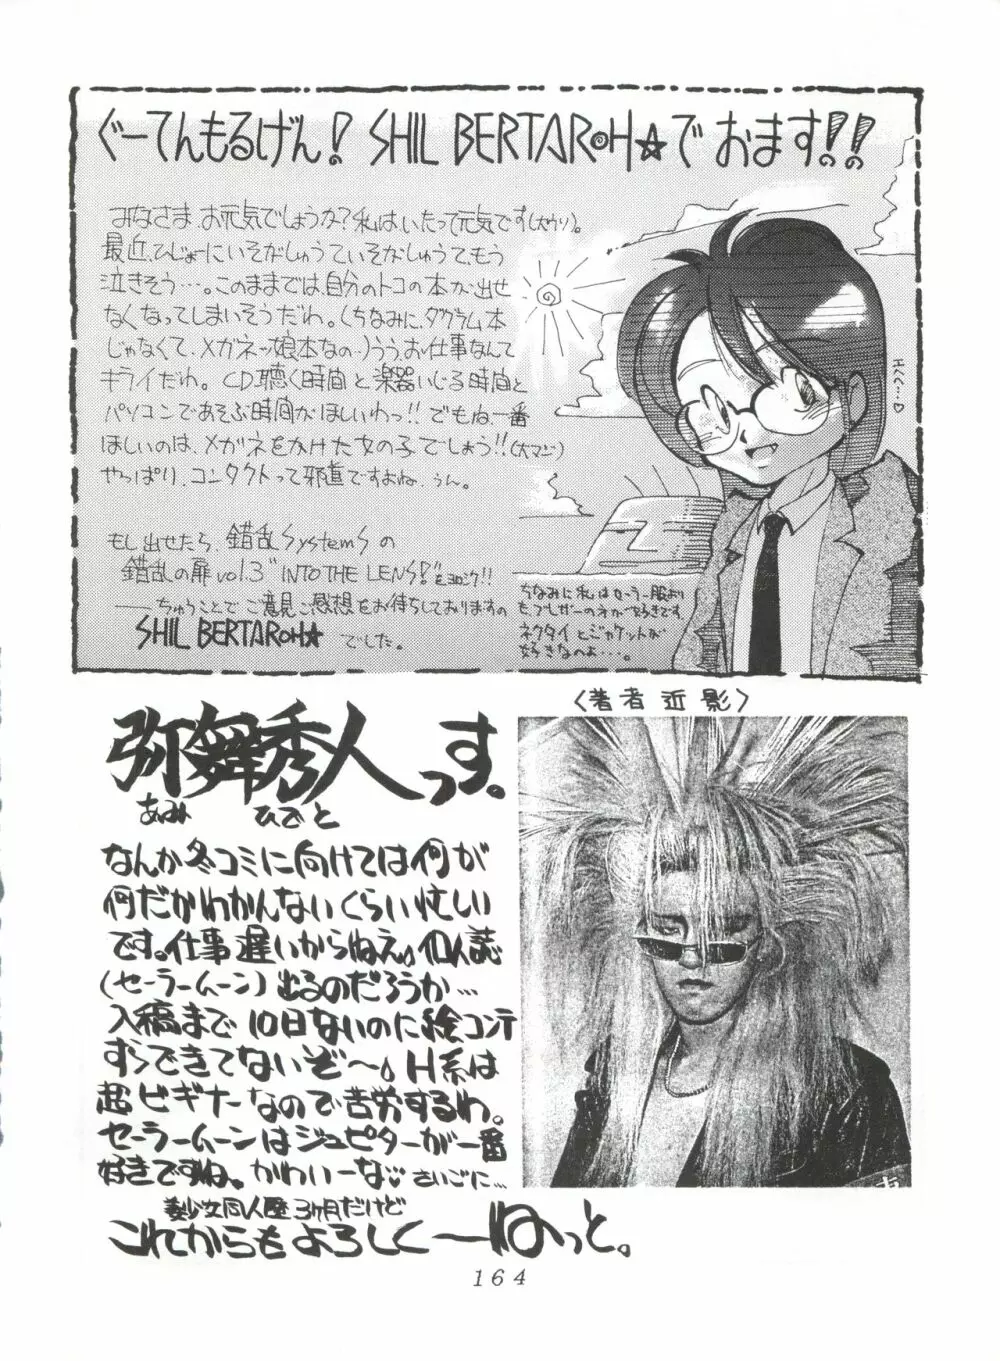 ぐーてんもるげん! SHIL BERTAROH☆で おます!!
みなさま、お元気でしょうか?私はいたって元気です(大ウソ)。
最近、ひじょーにいそがしゅうていそがしゅうて、もう
泣きそう…。このままでは自分のトコの本が出せ
なくなってしまいそうだわ。(ちなみに、ダグラム本
じゃなくて、メガネッ娘本なの…)うう、お仕事なんて
キライだわ。CD聴く時間と楽器いじる時間と
パソコンであそぶ時間がほしいわっ!!でもね、一番
ほしいのは、メガネをかけた女の子でしょう!!(大マジ)
やっぱり、コンタクトって邪道ですよね、うん。
エヘヘ…♡
もし出せたら、錯乱SystemSの
錯乱の扉vol.3"INTO THE LENS!"をヨロシク!!
――ちゅうことでご意見ご感想をお待ちしておりますの
SHIL BERTAROH☆でした。
ちなみに私はセーラー服より
もブレザーのネが好きです。
ネクタイとジャケットが
好きなのよ…。
〈著者近影〉
弥舞秀人っす。
あみ ひでと
なんか冬コミに向けては何が
何だかわかんないくらい忙しい
です。仕事遅いからねえ。個人誌
(セーラームーン)出るのだろうか…
入稿まで10日ないのに絵コンテ
すらできてないぞ〜。H系は
超ビギナーなので苦労するわ。
セーラームーンはジュピターが一番
好きですね。かわいーな♡さいごに…
美少女同人歴3ヶ月だけど
これからもよろしくーねっと。
164